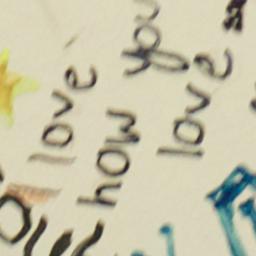 love
how you
love